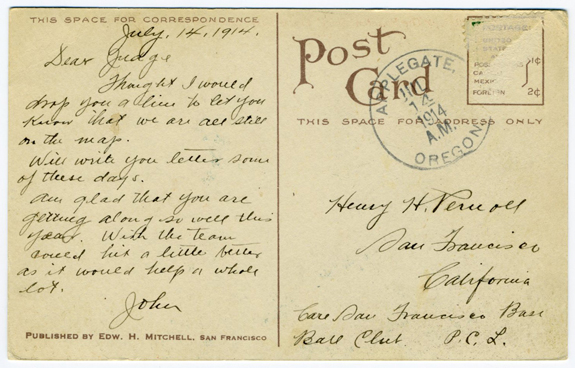 THIS SPACE FOR CORRESPONDENCE
July, 14, 1914.
Dear Judge
Thought I would
drop you a line to let you
know that we are all still
on the map.
Will write you letter some
of these days.
Am glad that you are
getting along so well this
year. Wish the team
could hit a little better
as it would help a whole
lot.
John
PUBLISHED BY EDW. H. MITCHELL, SAN FRANCISCO
Post
Card
THIS SPACE FOR ADDRESS ONLY
APPLEGATE,
14
1914
A.M.
OREGON
POSTAGE
1¢
FOREIGN 2¢
Henry H.
San Francisco
California
Care San Francisco Base
Ball Club P.C.L.